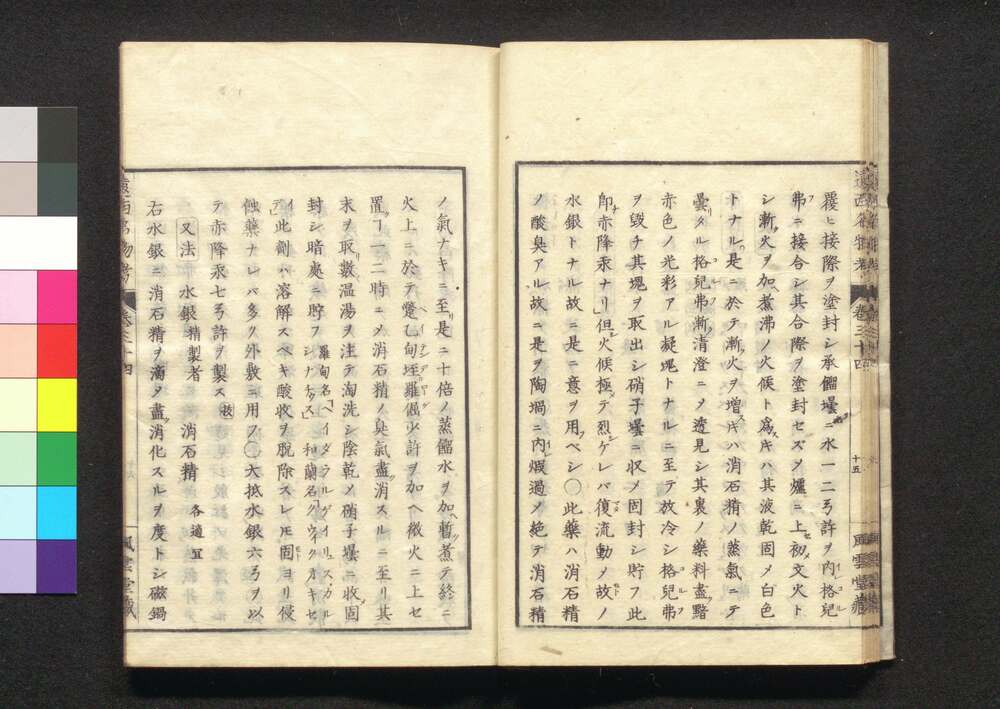 覆ヒ接際ヲ塗封シ承餾壜ニ水一二弓許ヲ內格兒
弗ニ接合シ其合際ヲ塗封セズメ爐ニ上初メ文火ト
シ漸火ヲ加煮沸ノ火候ト爲キハ其液乾固メ白色
トナル是ニ於テ漸火ヲ增スキハ消石精ノ蒸氣ニテ
曇リタル格兒弗漸淸澄ニメ透見シ其裏ノ藥料盡黯
赤色ノ光彩アル凝塊トナルニ至テ放冷シ格兒弗
ヲ毀チ其塊ヲ取出シ硝子壜ニ収メ固封シ貯フ此
卽赤降汞ナリ但火候極テ烈ケレバ復流動メ故ノ
水銀トナル故ニ是ニ意ヲ用ベシ〇此藥ハ消石精
ノ酸臭アル故ニ是ヲ陶堝ニ內煆過メ絕テ消石精
ノ氣ナキニ至リ是ニ十倍ノ蒸餾水ヲ加暫煮テ終ニ
火上ニ於テ蹩乙甸垤羅傴少許ヲ加ヘ微火ニ上セ
置ヿ一二時ニメ消石精ノ臭氣盡消スルニ至リ其
末ヲ取數溫湯ヲ注テ淘洗シ陰乾メ硝子壜ニ收固
封シ暗處ニ貯フ 羅甸名ヘイダラルゲイリュス、カルシナチュス 和蘭名クウィクカキセ
イ此劑ハ溶解スベキ酸收ヲ脫除スレモ固ヨリ侵
蝕藥ナレバ多ク外敷ニ用フ〇大抵水銀六弓ヲ以
テ赤降汞七弓許ヲ製ス
又法 水銀精製者 消石精 各適宜
右水銀ニ消石精ヲ滴タ盡消化スルヲ度トシ磁鍋
卷三十四
十五
風雲堂藏
卷三十四
風雲堂藏